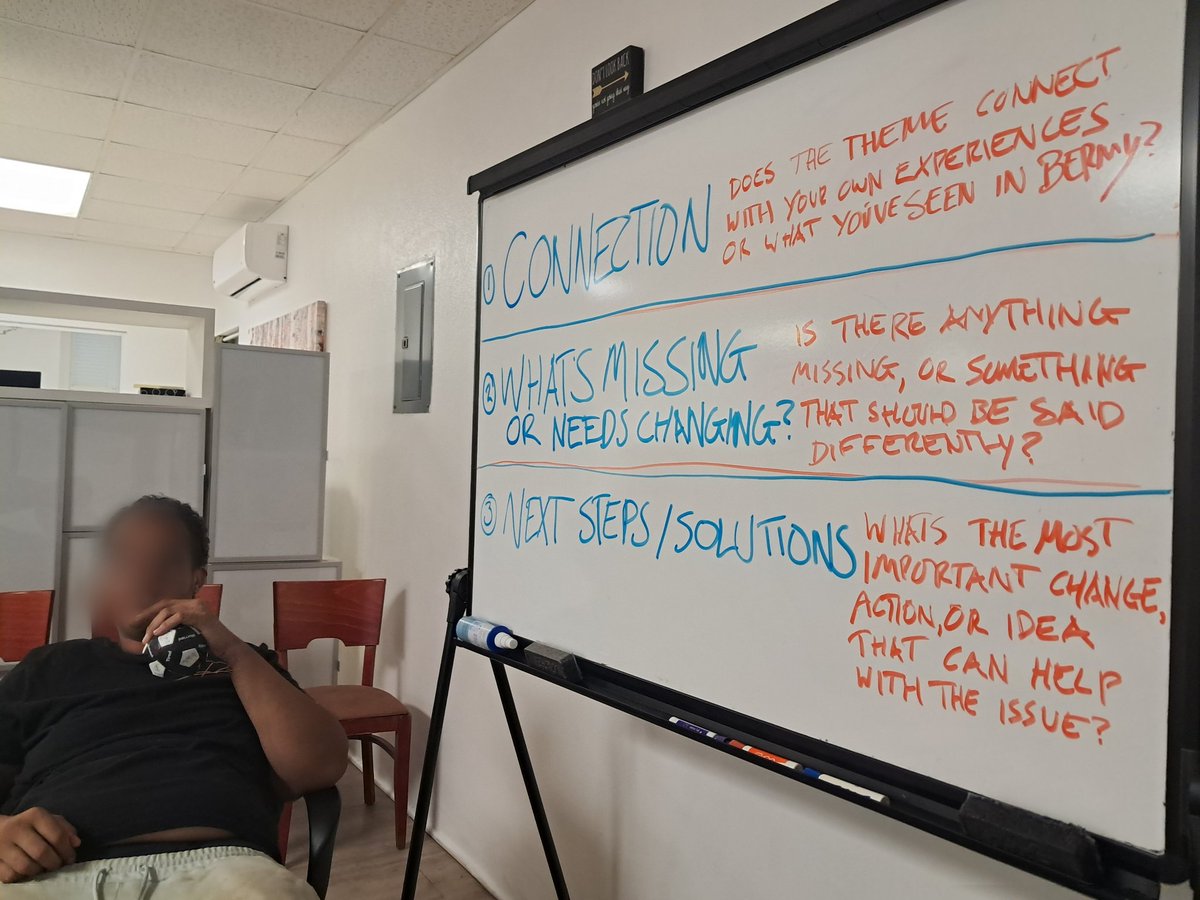 DON'T LOOK BACK
you're not going that way
① CONNECTION
DOES THE THEME CONNECT
WITH YOUR OWN EXPERIENCES
OR WHAT YOU'VE SEEN IN BERMY?
② WHAT'S MISSING
OR NEEDS CHANGING?
IS THERE ANYTHING
MISSING, OR SOMETHING
THAT SHOULD BE SAID
DIFFERENTLY?
③ NEXT STEPS/SOLUTIONS
WHATS THE MOST
IMPORTANT CHANGE,
ACTION, OR IDEA
THAT CAN HELP
WITH THE ISSUE?